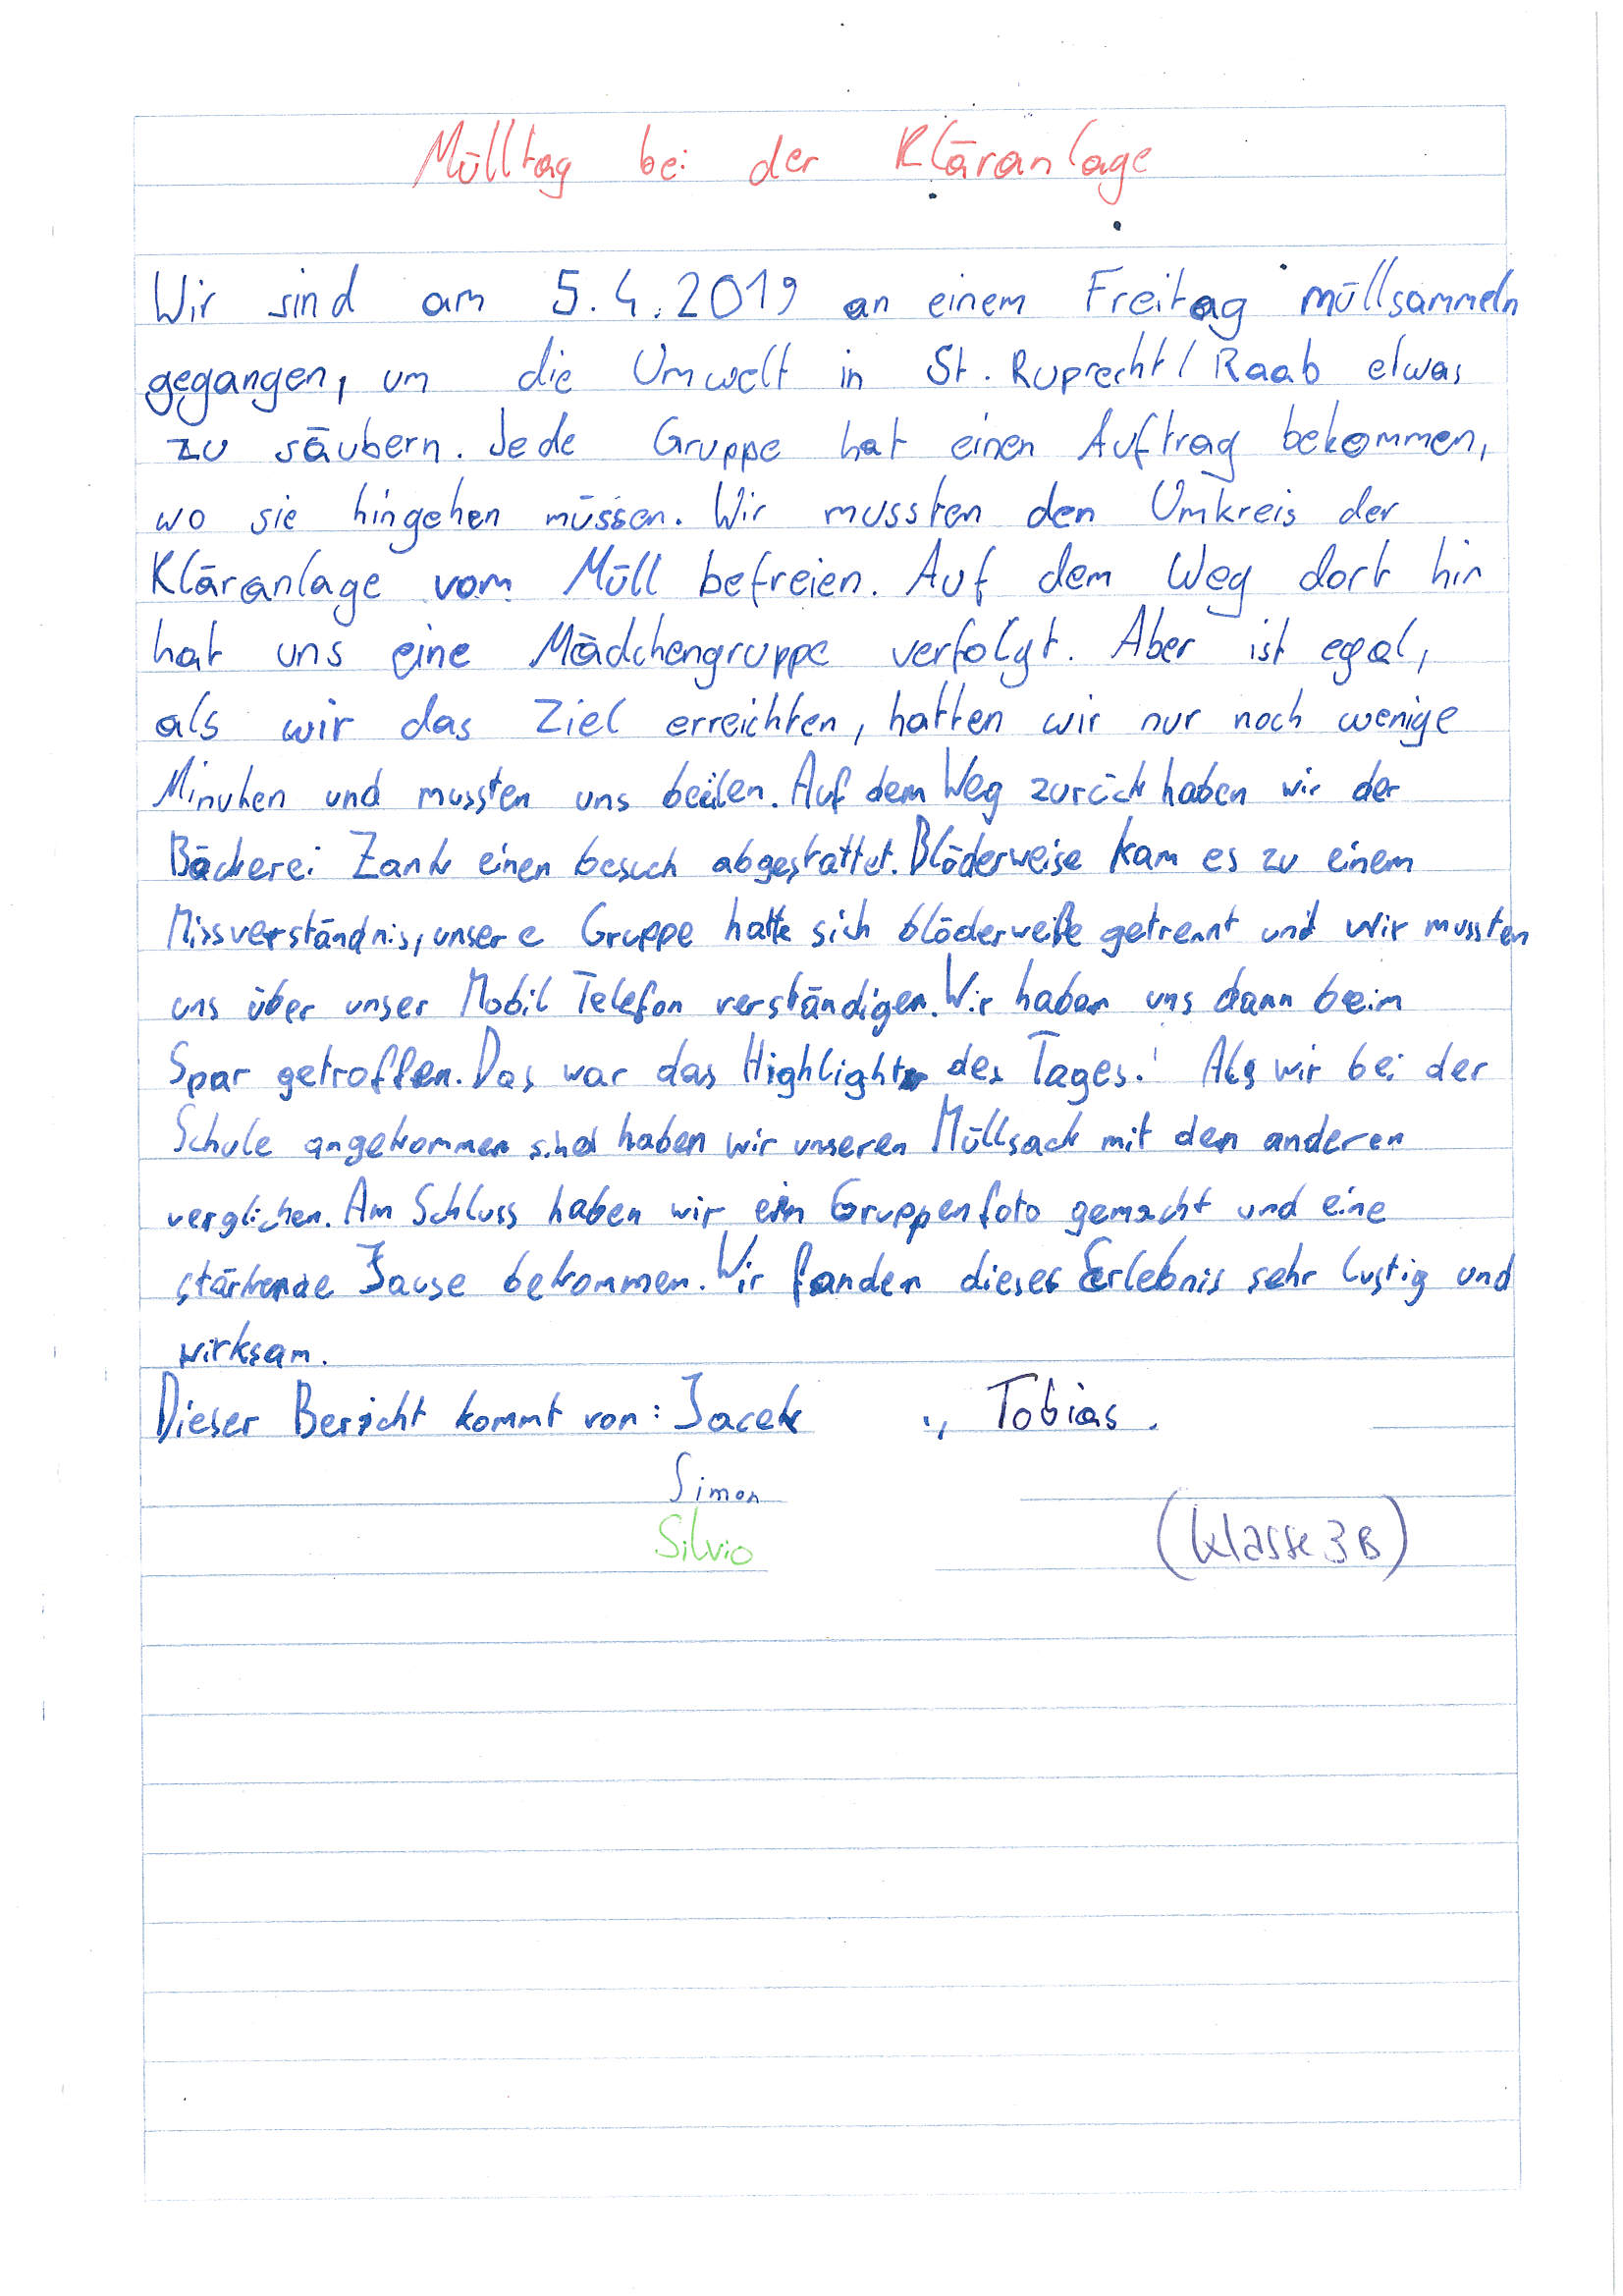 Mülltag bei der Kläranlage
Wir sind am 5.4.2019 an einem Freitag müllsammeln
gegangen, um die Umwelt in St. Ruprecht/Raab etwas
zu säubern. Jede Gruppe hat einen Auftrag bekommen,
wo sie hingehen müssen. Wir mussten den Umkreis der
Kläranlage vom Müll befreien. Auf dem Weg dort hin
hat uns eine Mädchengruppe verfolgt. Aber ist egal,
als wir das Ziel erreichten, hatten wir nur noch wenige
Minuten und mussten uns beeilen. Auf dem Weg zurück haben wir der
Bäckerei Zank einen besuch abgestattet. Blöderweise kam es zu einem
Missverständnis, unsere Gruppe hatte sich blöderweiße getrennt und wir mussten
uns über unser Mobil Telefon verständigen. Wir haben uns dann beim
Spar getroffen. Das war das Highlight des Tages! Als wir bei der
Schule angekommen sind haben wir unseren Müllsack mit den anderen
verglichen. Am Schluss haben wir ein Gruppenfoto gemacht und eine
stärkende Jause bekommen. Wir fanden dieses Erlebnis sehr lustig und
wirksam.
Dieser Bericht kommt von: Jacek ., Tobias.
Simon
Silvio
(Klasse 3B)